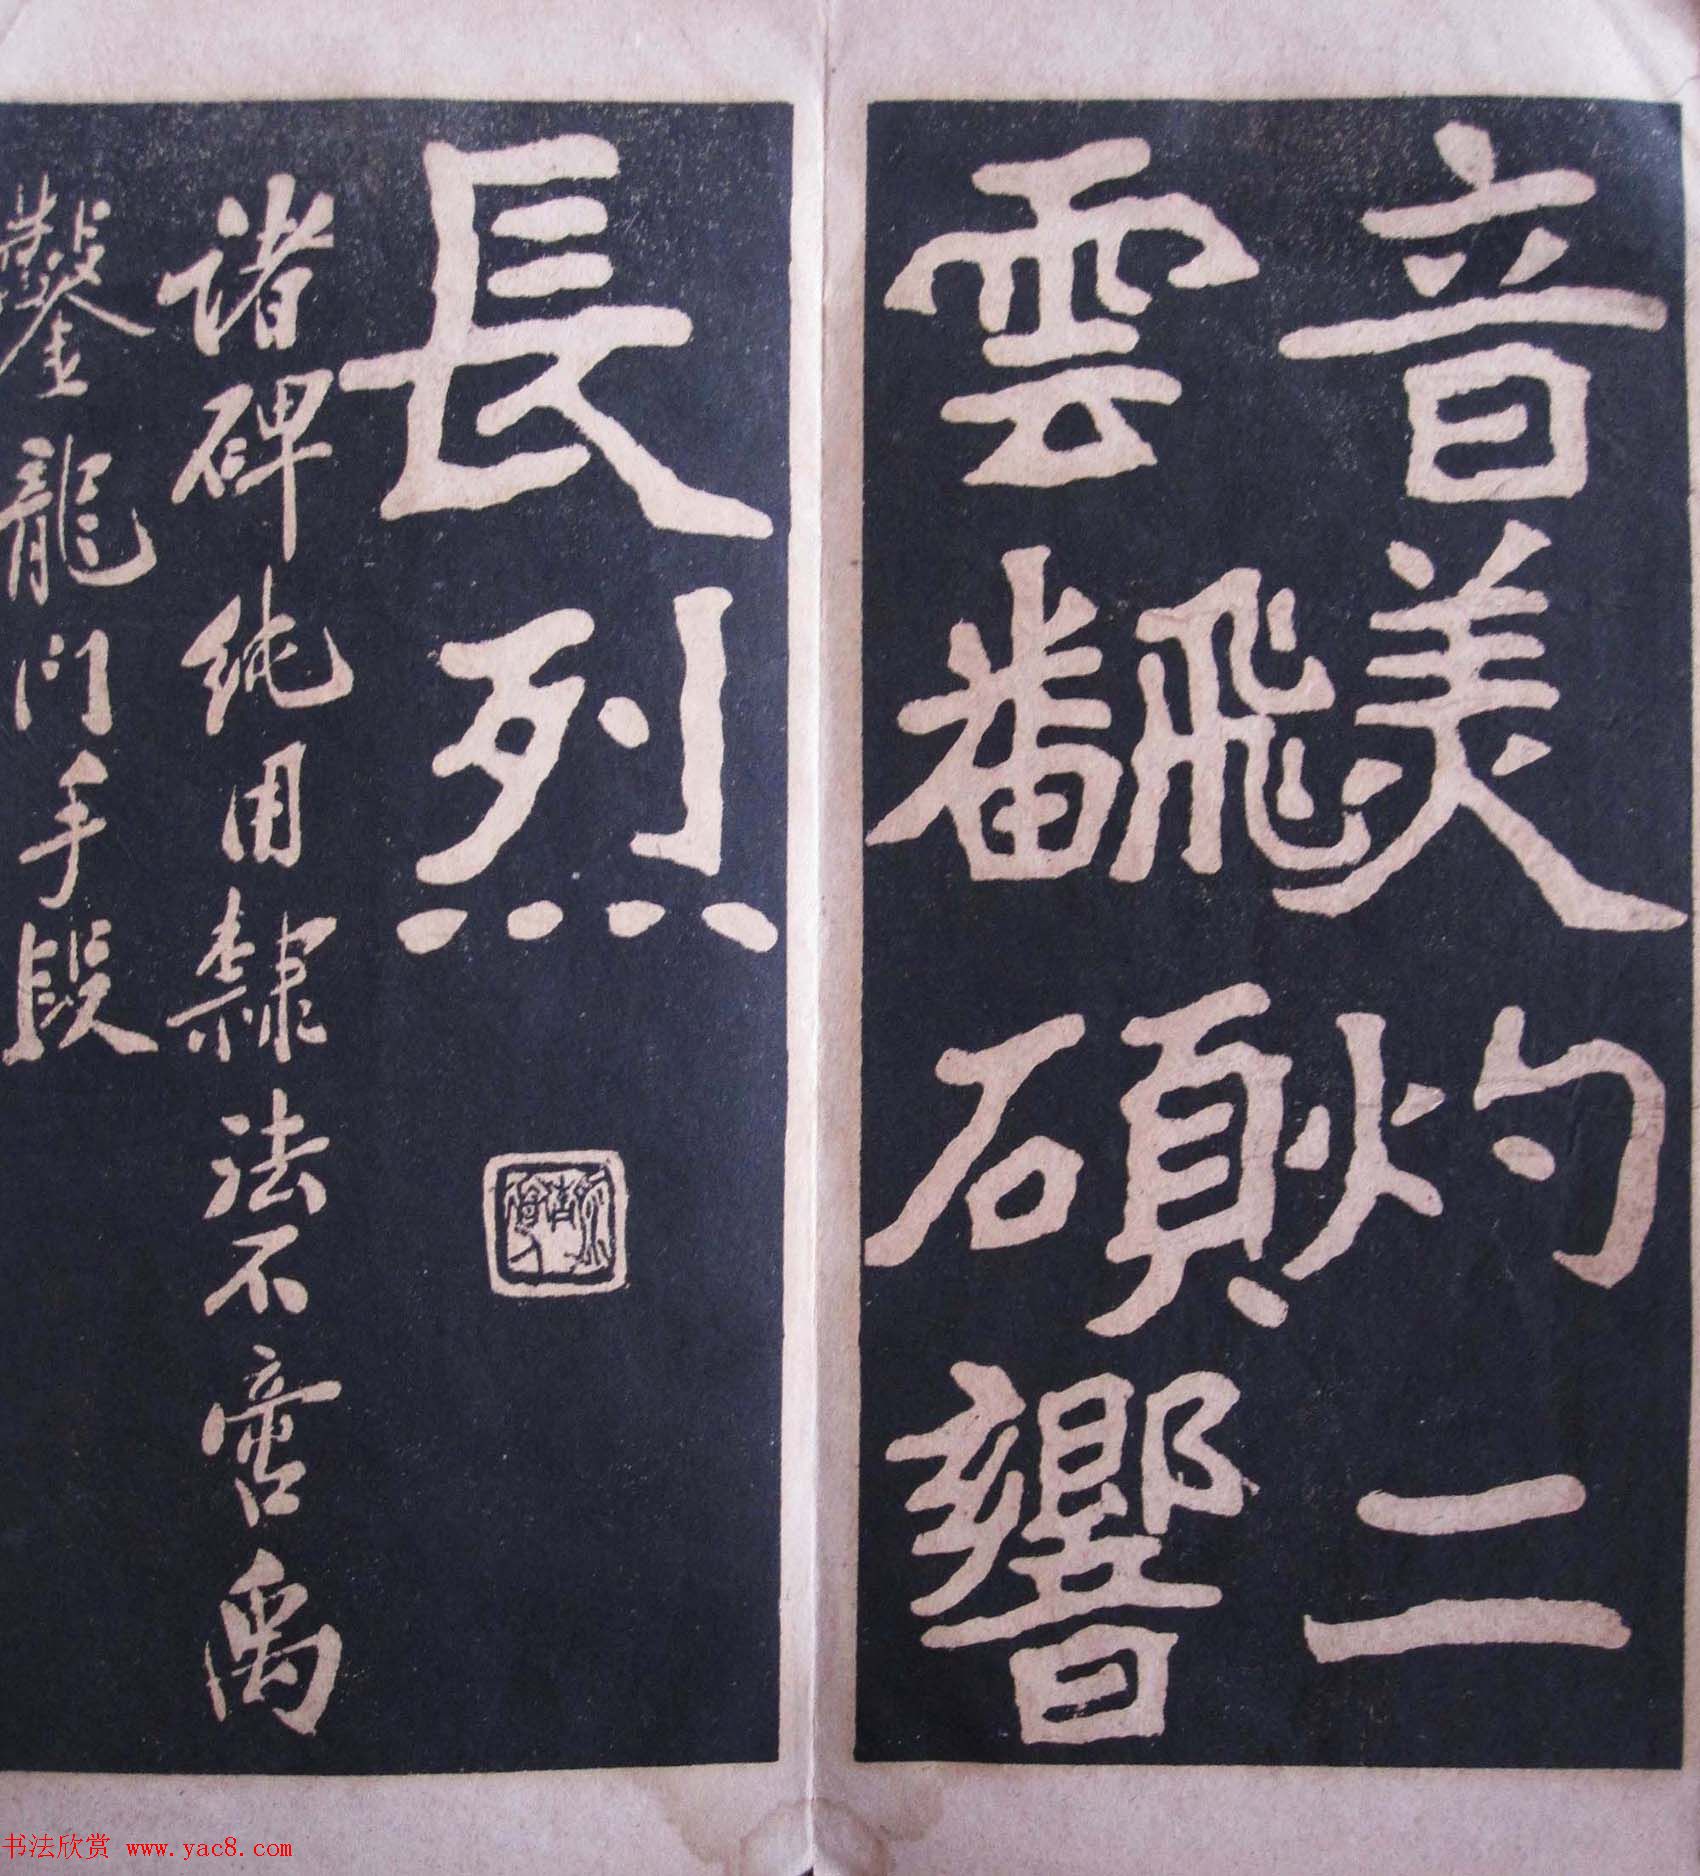 音美灼二
雲飜碩響
長烈
諸碑純用隸法不啻禹
鑿龍门手段
书法欣赏 www.yac8.com